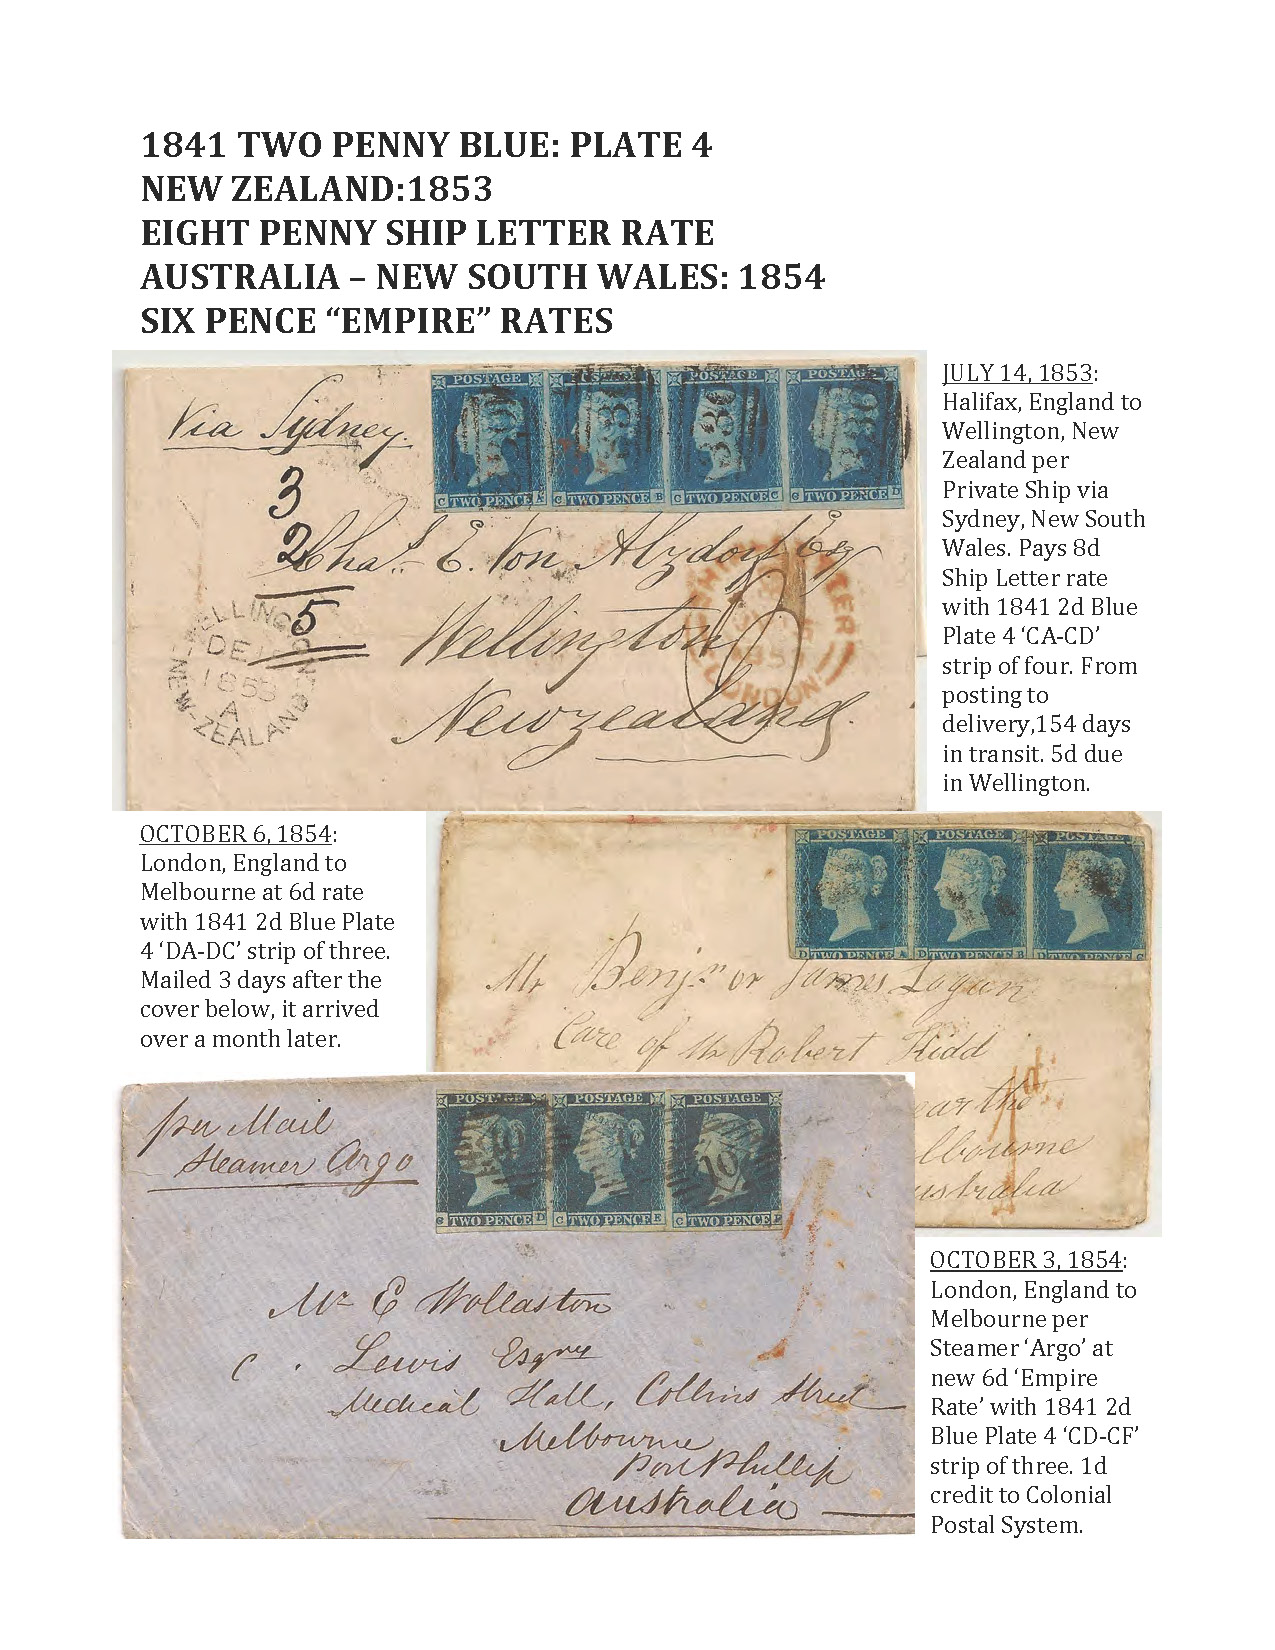 1841 TWO PENNY BLUE: PLATE 4
NEW ZEALAND:1853
EIGHT PENNY SHIP LETTER RATE
AUSTRALIA – NEW SOUTH WALES: 1854
SIX PENCE “EMPIRE” RATES
Via Sydney.
POSTAGE POSTAGE POSTAGE POSTAGE
C TWO PENCE A C TWO PENCE B C TWO PENCE C C TWO PENCE D
3
2
5
Chas. E. Von Alzdorf Esq
Wellington
Newzealand.
WELLINGTON
DE
1853
A
NEW-ZEALAND
LONDON
JULY 14, 1853:
Halifax, England to
Wellington, New
Zealand per
Private Ship via
Sydney, New South
Wales. Pays 8d
Ship Letter rate
with 1841 2d Blue
Plate 4 ‘CA-CD’
strip of four. From
posting to
delivery,154 days
in transit. 5d due
in Wellington.
OCTOBER 6, 1854:
London, England to
Melbourne at 6d rate
with 1841 2d Blue Plate
4 ‘DA-DC’ strip of three.
Mailed 3 days after the
cover below, it arrived
over a month later.
POSTAGE POSTAGE POSTAGE
D TWO PENCE A D TWO PENCE B D TWO PENCE C
Mr Benjn or James Logan
Care of Mr Robert Kidd
ear the
lbourne
ustralia
per Mail
Steamer Argo
POSTAGE POSTAGE POSTAGE
C TWO PENCE D C TWO PENCE E C TWO PENCE F
10
Mr E Wollaston
Lewis Esqre
Medical Hall, Collins Street
Melbourne
Port Phillip
Australia
OCTOBER 3, 1854:
London, England to
Melbourne per
Steamer ‘Argo’ at
new 6d ‘Empire
Rate’ with 1841 2d
Blue Plate 4 ‘CD-CF’
strip of three. 1d
credit to Colonial
Postal System.